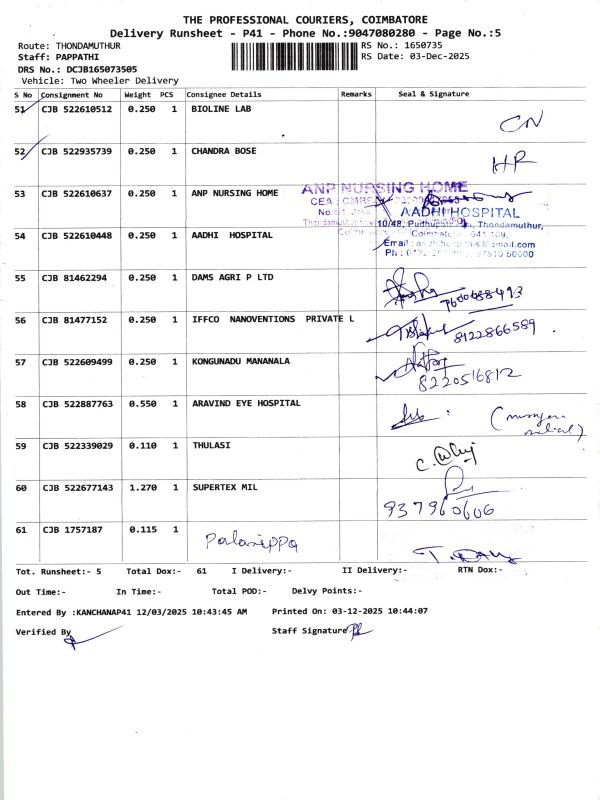 THE PROFESSIONAL COURIERS, COIMBATORE
Delivery Runsheet - P41 - Phone No.:9047080280 - Page No.:5
Route: THONDAMUTHUR RS No.: 1650735
Staff: PAPPATHI RS Date: 03-Dec-2025
DRS No.: DCJB165073505
Vehicle: Two Wheeler Delivery
S No Consignment No Weight PCS Consignee Details Remarks Seal & Signature
51 CJB 522610512 0.250 1 BIOLINE LAB
CN
52 CJB 522935739 0.250 1 CHANDRA BOSE
HR
53 CJB 522610637 0.250 1 ANP NURSING HOME
ANP NURSING HOME
CEA
AADHI HOSPITAL
10/48, Thondamuthur,
54 CJB 522610448 0.250 1 AADHI HOSPITAL
55 CJB 81462294 0.250 1 DAMS AGRI P LTD
56 CJB 81477152 0.250 1 IFFCO NANOVENTIONS PRIVATE L
8122866589
57 CJB 522609499 0.250 1 KONGUNADU MANANALA
8220516812
58 CJB 522887763 0.550 1 ARAVIND EYE HOSPITAL
59 CJB 522339029 0.110 1 THULASI
60 CJB 522677143 1.270 1 SUPERTEX MIL
937960606
61 CJB 1757187 0.115 1
Palanippa
Tot. Runsheet:- 5 Total Dox:- 61 I Delivery:- II Delivery:- RTN Dox:-
Out Time:- In Time:- Total POD:- Delvy Points:-
Entered By :KANCHANAP41 12/03/2025 10:43:45 AM Printed On: 03-12-2025 10:44:07
Verified By Staff Signature